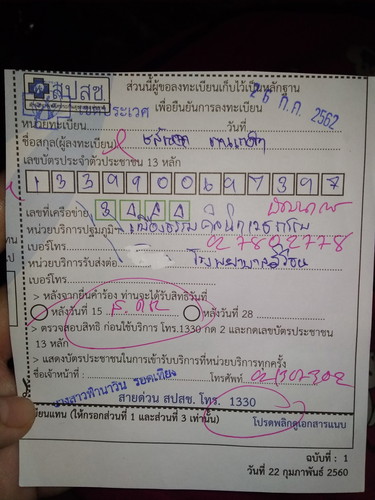 สปสช.
ส่วนนี้ผู้ขอลงทะเบียนเก็บไว้เป็นหลักฐาน
เพื่อยืนยันการลงทะเบียน
26 ก.ค. 2562
เขตประเวศ
หน่วยทะเบียน วันที่
ชื่อสกุล(ผู้ลงทะเบียน)
เลขบัตรประจำตัวประชาชน 13 หลัก
1 3 3 9 9 0 0 6 9 7 3 9 7
เลขที่เครือข่าย
หน่วยบริการปฐมภูมิ
เบอร์โทร 02 7802778
หน่วยบริการรับส่งต่อ
เบอร์โทร
> หลังจากยื่นคำร้อง ท่านจะได้รับสิทธิวันที่
หลังวันที่ 15 หลังวันที่ 28
> ตรวจสอบสิทธิ ก่อนใช้บริการ โทร.1330 กด 2 และกดเลขบัตรประชาชน
13 หลัก
> แสดงบัตรประชาชนในการเข้ารับบริการที่หน่วยบริการทุกครั้ง
ชื่อเจ้าหน้าที่ : โทรศัพท์
สายด่วน สปสช. โทร. 1330
เขียนแทน (ให้กรอกส่วนที่ 1 และส่วนที่ 3 เท่านั้น) โปรดพลิกดูเอกสารแนบ
ฉบับที่ : 1
วันที่ 22 กุมภาพันธ์ 2560